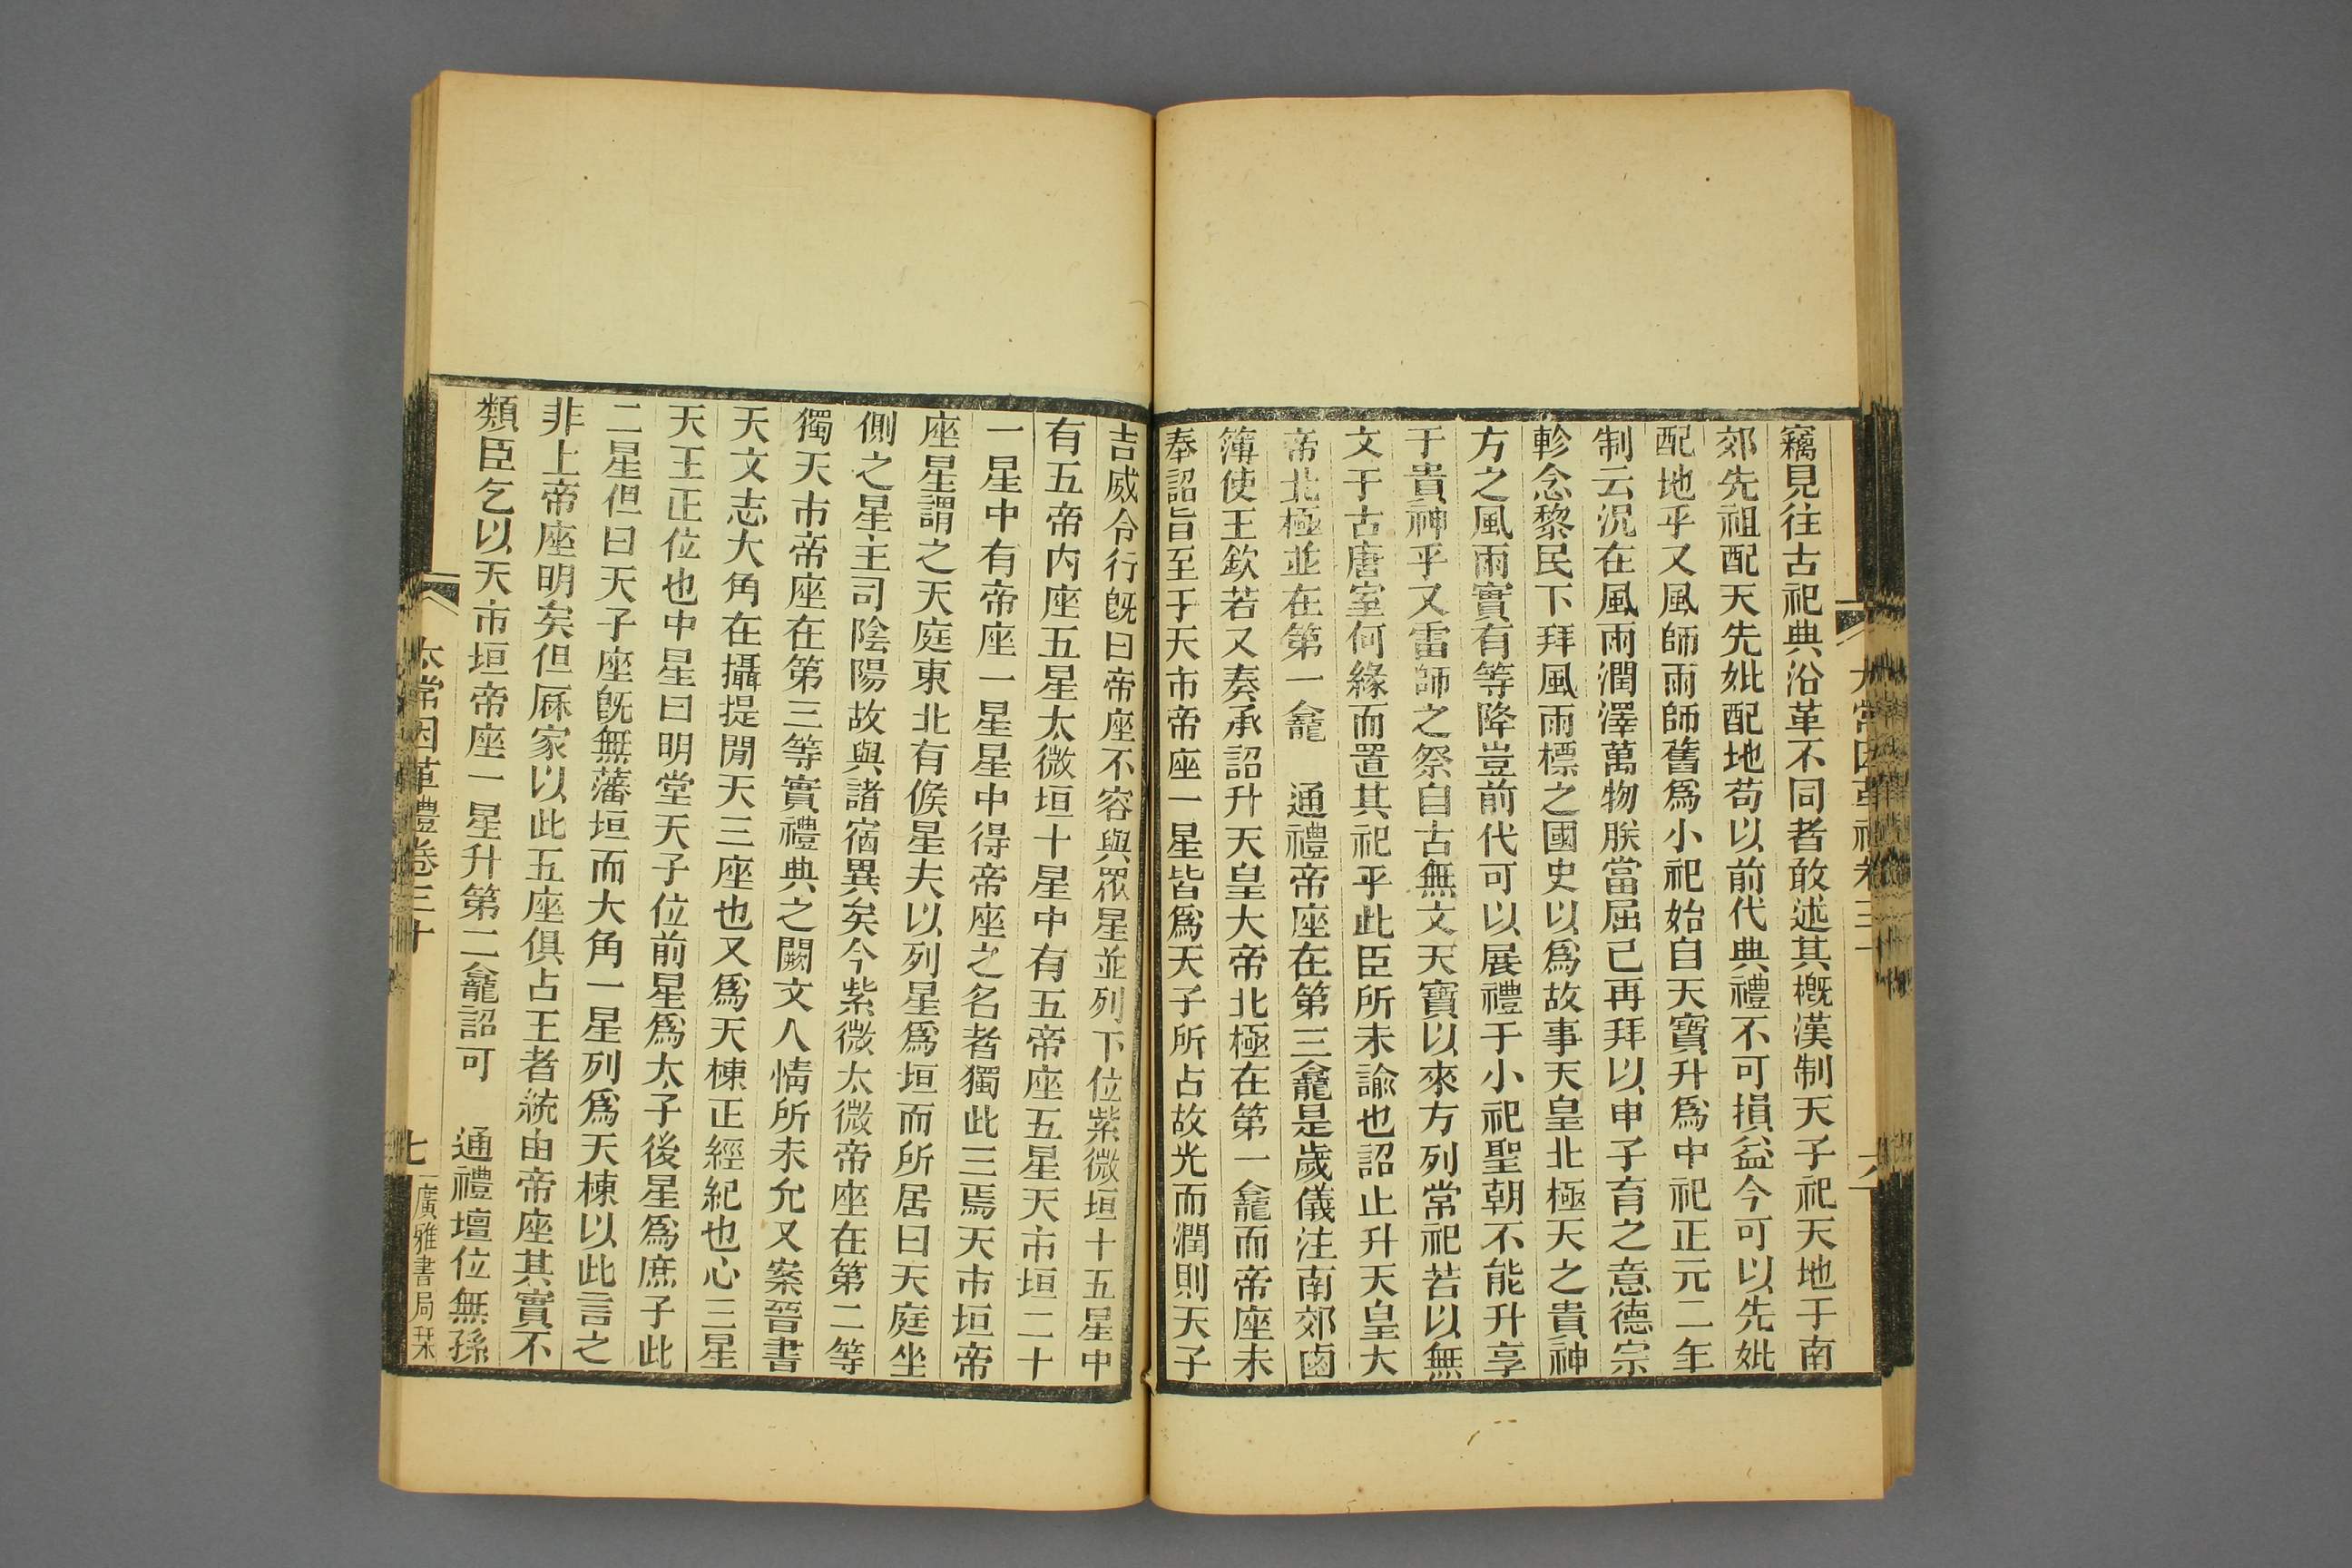 竊見往古祀典沿革不同者敢述其概漢制天子祀天地于南
郊先祖配天先妣配地苟以前代典禮不可損益今可以先妣
配地乎又風師雨師舊爲小祀始自天寶升爲中祀正元二年
制云況在風雨潤澤萬物朕當屈己再拜以申子育之意德宗
軫念黎民下拜風雨標之國史以爲故事天皇北極天之貴神
方之風雨實有等降豈前代可以展禮于小祀聖朝不能升享
于貴神乎又雷師之祭自古無文天寶以來方列常祀若以無
文于古唐室何緣而置其祀乎此臣所未諭也詔止升天皇大
帝北極並在第一龕　通禮帝座在第三龕是歲儀注南郊鹵
簿使王欽若又奏承詔升天皇大帝北極在第一龕而帝座未
奉詔旨至于天市帝座一星皆爲天子所占故光而潤則天子
吉威令行旣曰帝座不容與眾星並列下位紫微垣十五星中
有五帝內座五星太微垣十星中有五帝座五星天市垣二十
一星中有帝座一星星中得帝座之名者獨此三焉天市垣帝
座星謂之天庭東北有候星夫以列星爲垣而所居曰天庭坐
側之星主司陰陽故與諸宿異矣今紫微太微帝座在第二等
獨天市帝座在第三等實禮典之闕文人情所未允又案晉書
天文志大角在攝提閒天三座也又爲天棟正經紀也心三星
天王正位也中星曰明堂天子位前星爲太子後星爲庶子此
二星但曰天子座旣無藩垣而大角一星列爲天棟以此言之
非上帝座明矣但厤家以此五座俱占王者統由帝座其實不
類臣乞以天市垣帝座一星升第二龕詔可　通禮壇位無孫
太常因革禮卷三十
七
廣雅書局栞